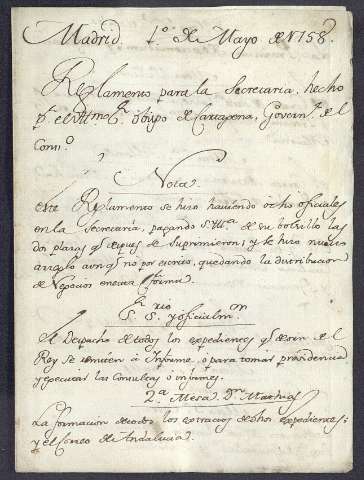 Madrid 1º de Mayo de 1758
Reglamento para la Secretaria, hecho
pr el Illmo Sr Obispo de Cartagena, Governr del
Consº
Nota
este Reglamento se hizo haviendo ocho oficiales
en la Secretaria, pagando S. Mta de su bolsillo las
dos plazas q despues se suprimieron, y se hizo nuevo
arreglo aunq no por escrito, quedando la distribucion
de Negocios en esta forma
Sr Srio y oficial mr
El Despacho de todos los expedientes qe de orn del
Rey se remiten à Informe, o para tomar providencia
y executar las Consultas ò informes.
2ª Mesa Dn Mathias
La formacion de todos los extractos de dhos expedientes;
y el Correo de Andalucia.